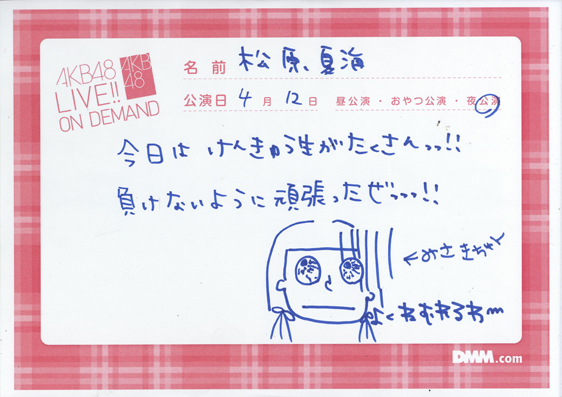 AKB48
LIVE!!
ON DEMAND
AKB
48
名前 松原夏海
公演日 4月12日 昼公演・おやつ公演・夜公演
今日は けんきゅう生がたくさんっっ!!
負けないように頑張ったぜっっっ!!
←みさきちゃん
よくねむれるわm
DMM.com